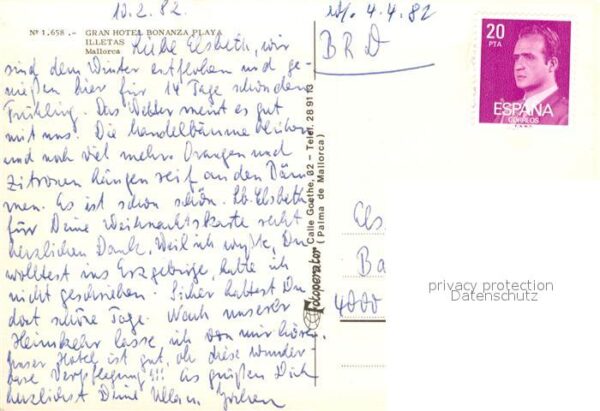 10.2.82
Nº 1.658.- GRAN HOTEL BONANZA PLAYA
ILLETAS
Mallorca
Liebe Elsbeth, wir
sind dem Winter entflohen und ge-
nießen hier für 14 Tage schönsten
Frühling. Das Wetter meint es gut
mit uns. Die Mandelbäume blühen
und noch viel mehr Orangen und
Zitronen hängen reif an den Bäu
men. Es ist schön schön. Lb. Elsbeth
für Deine Weihnachtskarte recht
herzlichen Dank. Weil ich wußte, Du
wolltest ins Erzgebirge, habe ich
nicht geschrieben. Sicher hattest Du
dort schöne Tage. Nach unserer
Heimkehr lasse ich von mir hören.
Unser Hotel ist gut, oh diese wunder
bare Verpflegung!!! Es grüßen Dich
herzlichst Deine
Fotoperator Calle Goethe, 32 - Telef. 28 91 13
(Palma de Mallorca)
4.4.82
BRD
20
PTA
ESPAÑA
CORREOS
Els
Ba
4000
privacy protection
Datenschutz